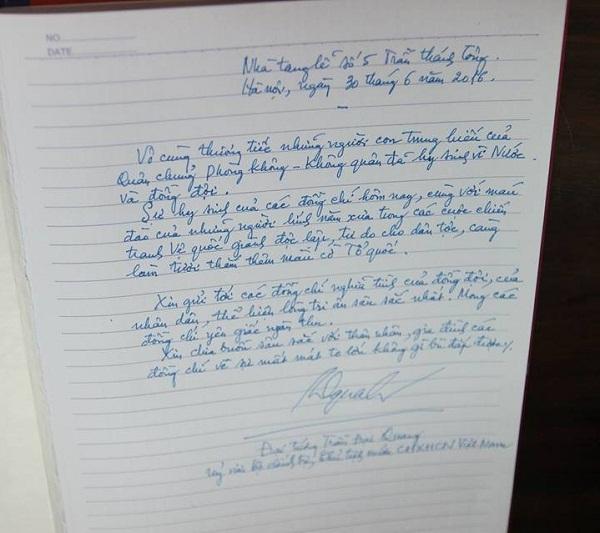 NO.
DATE
Nhà tang lễ số 5 Trần Thánh Tông.
Hà nội, ngày 30 tháng 6 năm 2016.
Vô cùng thương tiếc những người con trung hiếu của
Quân chủng Phòng Không - Không quân đã hy sinh vì Nước
và đồng đội.
Sự hy sinh của các đồng chí hôm nay, cùng với máu
đào của những người lính năm xưa trong các cuộc chiến
tranh vệ quốc, giành độc lập, tự do cho dân tộc, càng
làm tươi thắm thêm màu cờ Tổ quốc.
Xin gửi tới các đồng chí nghĩa tình của đồng đội, của
nhân dân, thể hiện lòng tri ân sâu sắc nhất. Mong các
đồng chí yên giấc ngàn thu.
Xin chia buồn sâu sắc với thân nhân, gia đình các
đồng chí về sự mất mát to lớn không gì bù đắp được./.
Đại tướng Trần Đại Quang
Uỷ viên Bộ chính trị, Chủ tịch nước CHXHCN Việt Nam